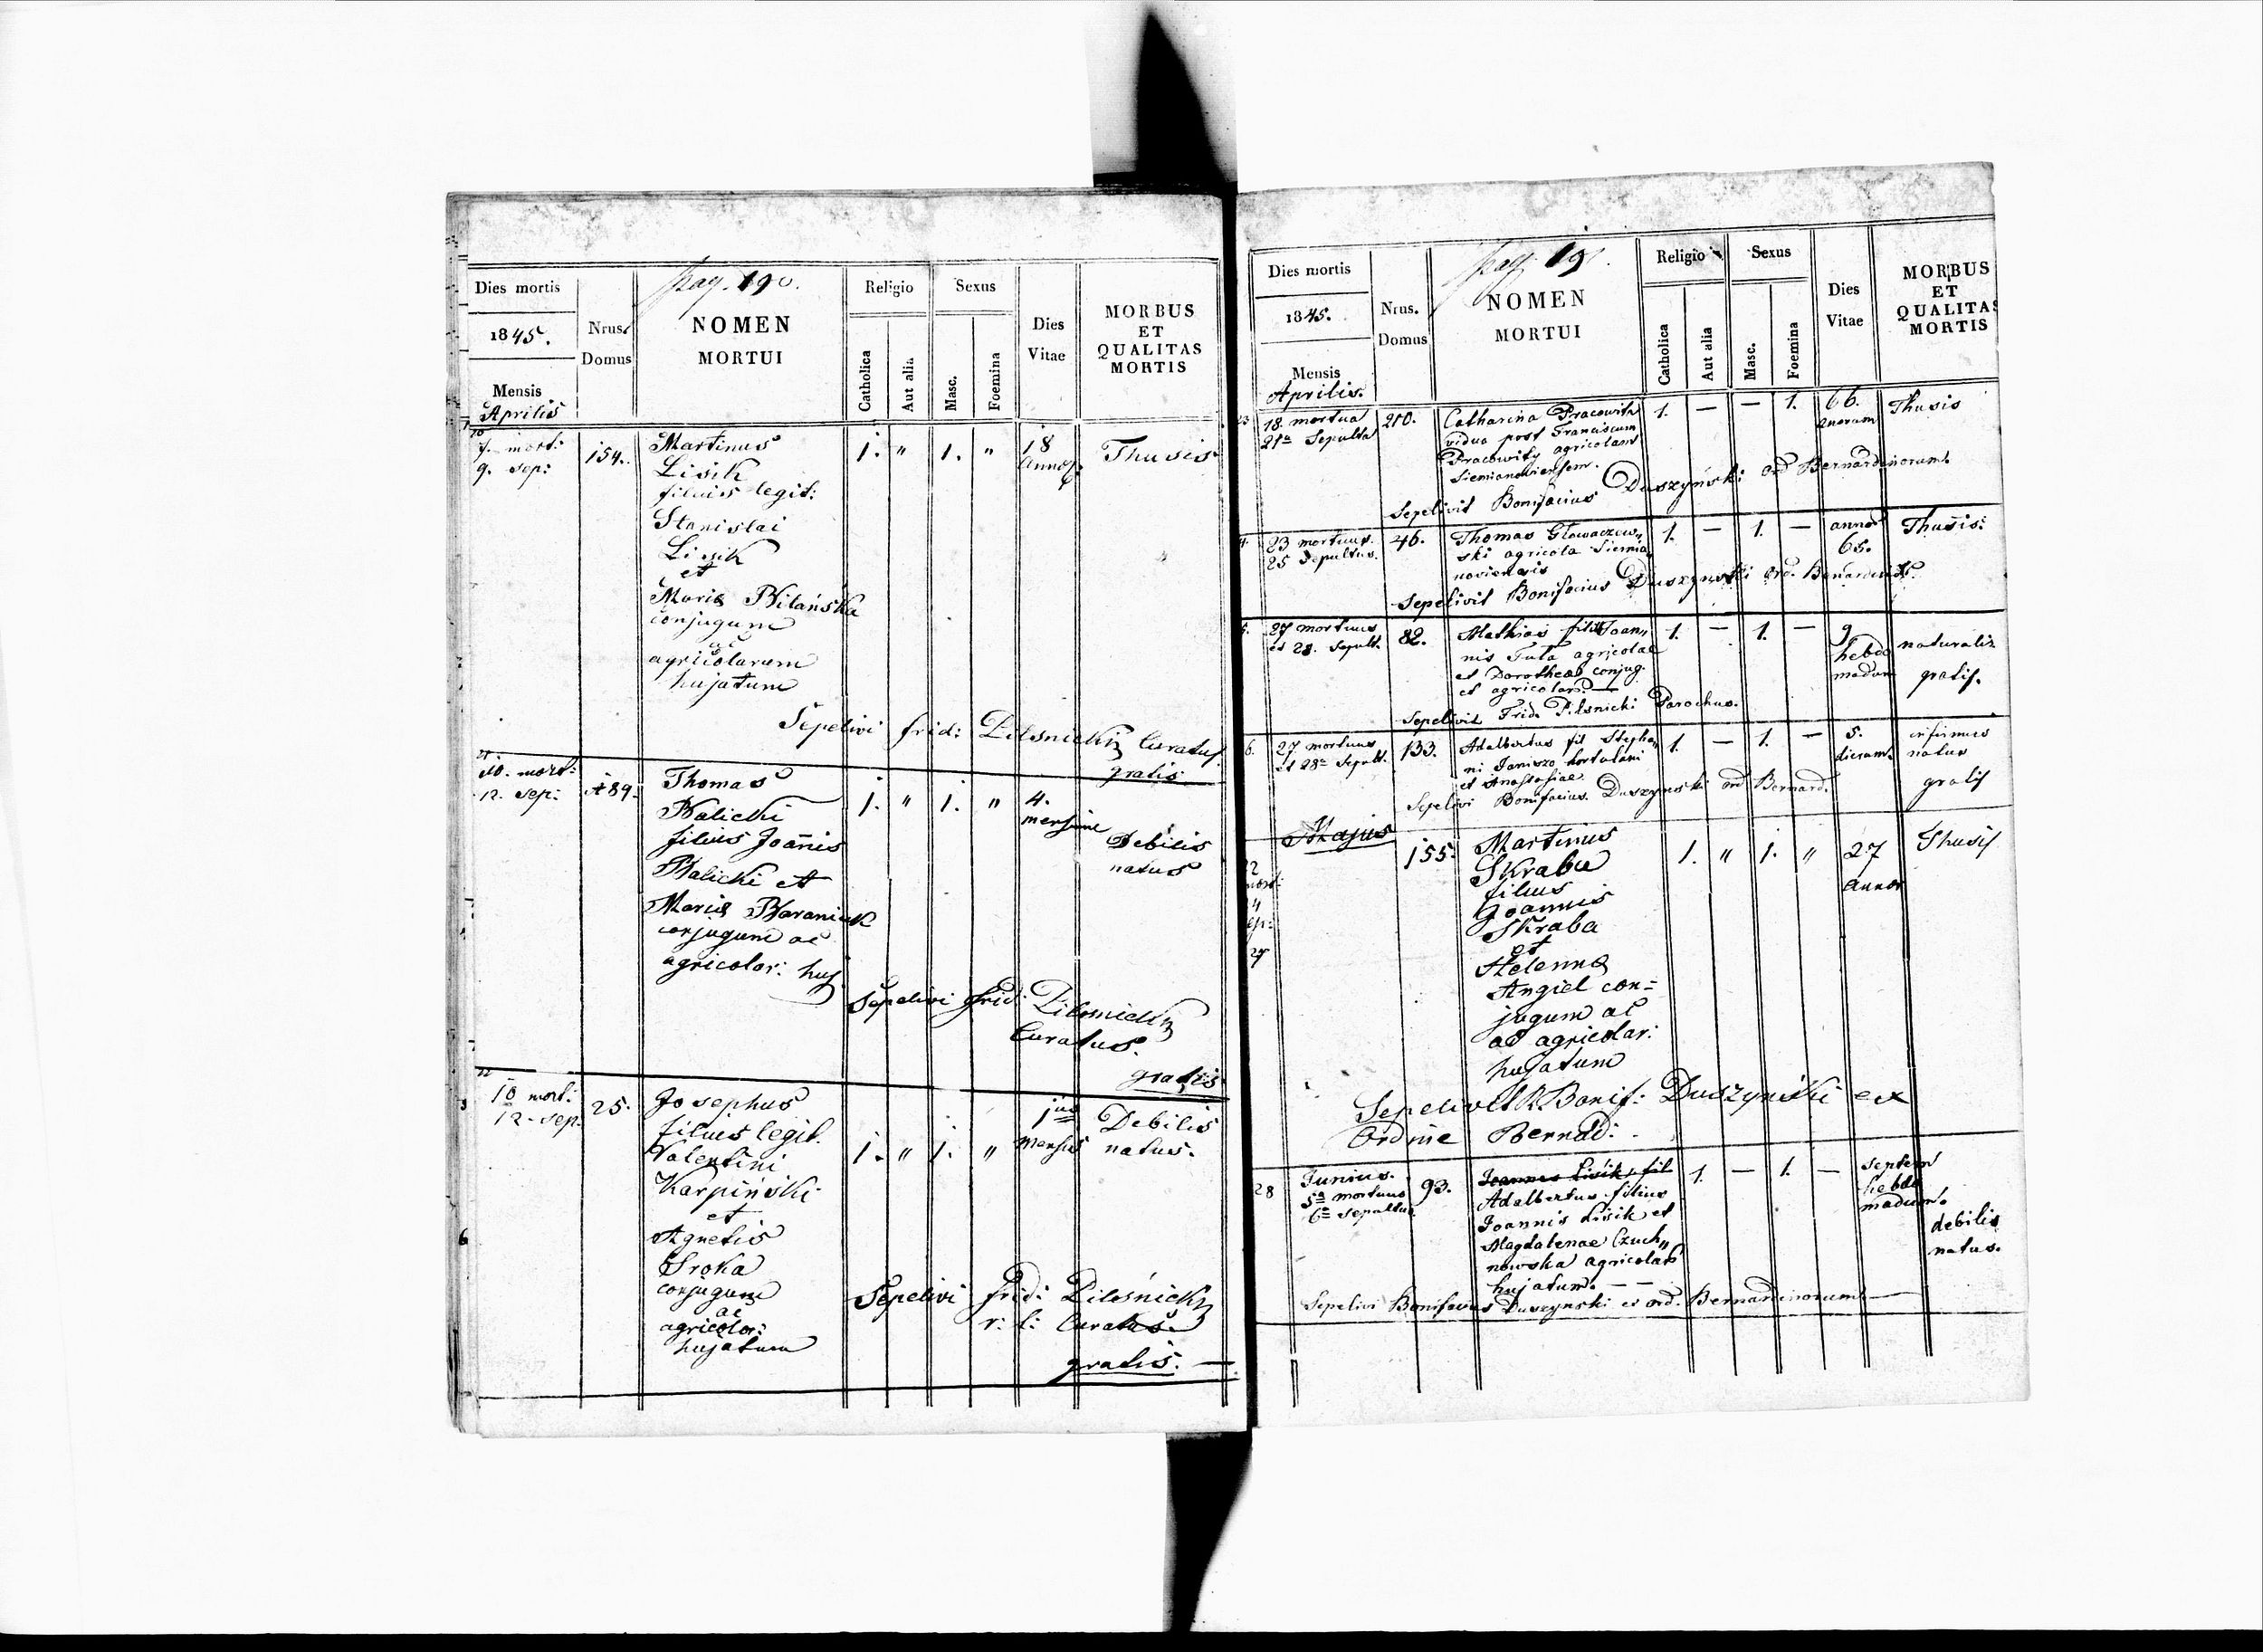 pag. 190.
Dies mortis
1845.
Mensis
Aprilis
Nrus.
Domus
NOMEN
MORTUI
Religio
Catholica
Aut alia
Sexus
Masc.
Foemina
Dies
Vitae
MORBUS
ET
QUALITAS
MORTIS
7. mort:
9. sep:
154.
Martinus
Lisik
filius legit:
Stanislai
Lisik
et
Maria Bilańska
conjugum
ac
agricolarum
hujatum
1. " 1. "
18
Annor:
Thusis
Sepelivi frid: Pilsnicki Curatus
gratis
10. mort:
12. sep:
189.
Thomas
Balicki
filius Joannis
Balicki et
Maria Baraniuk
conjugum ac
agricolar: huj
1. " 1. "
4.
mensium
Debilis
natus
Sepelivi frid: Pilsnicki
Curatus.
gratis
22
10 mort:
12. sep.
25.
Josephus
filius legit.
Valentini
Karpiński
et
Agnetis
Sroka
conjugum
ac
agricolar:
hujatum
1. " 1. "
1us
Mensis
Debilis
natus.
Sepelivi frid: Pilsnicki
r: l: Curatus.
gratis. —
pag. 191.
Dies mortis
1845.
Mensis
Aprilis.
Nrus.
Domus
NOMEN
MORTUI
Religio
Catholica
Aut alia
Sexus
Masc.
Foemina
Dies
Vitae
MORBUS
ET
QUALITAS
MORTIS
18. mortua
21a Sepulta
210.
Catharina Pracowita
vidua post Franciscum
Pracowity agricolam
Siemianoviensem.
1. — — 1.
66.
anorum
Thusis
Sepelivit Bonifacius Duszyński ord Bernardinorum.
23 mortuus.
25 Sepultus.
46.
Thomas Głowaczew„
ski agricola Siemia
noviensis
1. — 1. —
annor
65.
Thusis:
Sepelivit Bonifacius Duszynski ord. Bernardin
5.
27 mortuus
et 28. Sepult.
82.
Mathias filius Joan„
nis Tuta agricolae
et Dorotheae conjug.
et agricolar. —
1. — 1. —
9
hebdo
madum
naturalis
gratis.
Sepelivit Frid. Pilsnicki Parochus.
6.
27 mortuus
et 28a Sepult.
133.
Adalbertus fil Stepha„
ni Janiszo hortulani
et Anastasiae
1. — 1. —
5.
dierum.
infirmus
natus
gratis
Sepelivi Bonifacius Duszynski ord Bernard.
Majus
2
mort:
4
sep:
27
155.
Martinus
Skraba
filius
Joannis
Skraba
et
Helenna
Angiel con=
jugum ac
ad agricolar:
hujatum
1. " 1. "
27
annor
Thusis
Sepelivit R. Bonif: Duszyniski ex
Ordine Bernad:
28
Junius.
5a mortuus
6a sepultus
93.
Joannes Lisik, fil
Adalbertus filius
Joannis Lisik et
Magdalenae Czuch„
nowska agricolar
hujatum. — —
1. — 1. —
septem
hebdo
madum.
debilis
natus.
Sepelivi Bonifacius Duszynski ex ord. Bernardinorum. —